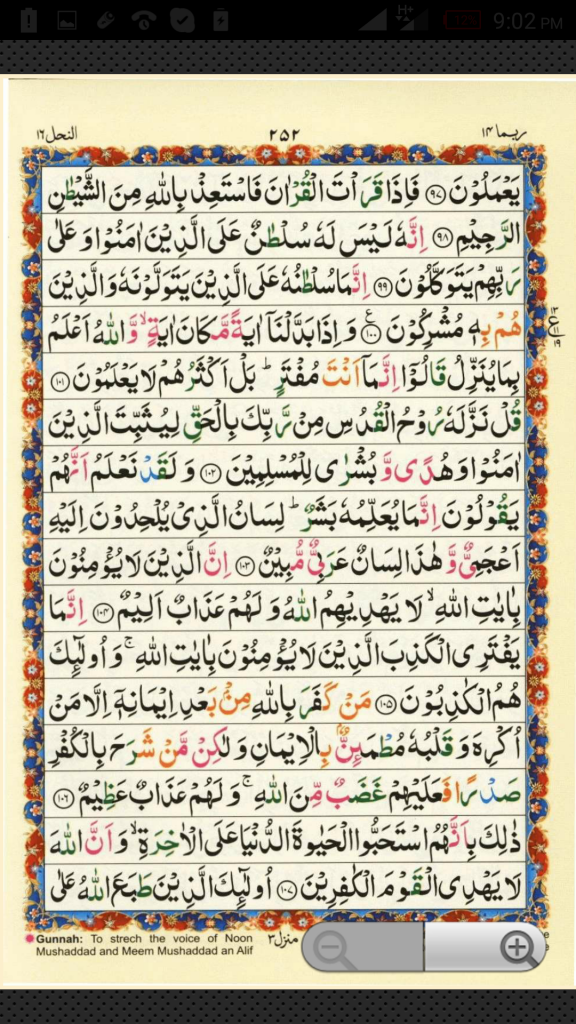 9:02 PM
النحل ۱۶ ۲۵۲ ربما ۱۴
يَعْمَلُوْنَ ۹۷ فَاِذَا قَرَاْتَ الْقُرْاٰنَ فَاسْتَعِذْ بِاللّٰهِ مِنَ الشَّيْطٰنِ
الرَّجِيْمِ ۹۸ اِنَّهٗ لَيْسَ لَهٗ سُلْطٰنٌ عَلَى الَّذِيْنَ اٰمَنُوْا وَعَلٰى
رَبِّهِمْ يَتَوَكَّلُوْنَ ۹۹ اِنَّمَا سُلْطٰنُهٗ عَلَى الَّذِيْنَ يَتَوَلَّوْنَهٗ وَالَّذِيْنَ
هُمْ بِهٖ مُشْرِكُوْنَ ۱۰۰ وَاِذَا بَدَّلْنَاۤ اٰيَةً مَّكَانَ اٰيَةٍ ۙ وَّاللّٰهُ اَعْلَمُ
بِمَا يُنَزِّلُ قَالُوْۤا اِنَّمَاۤ اَنْتَ مُفْتَرٍ ؕ بَلْ اَكْثَرُهُمْ لَا يَعْلَمُوْنَ ۱۰۱
قُلْ نَزَّلَهٗ رُوْحُ الْقُدُسِ مِنْ رَّبِّكَ بِالْحَقِّ لِيُثَبِّتَ الَّذِيْنَ
اٰمَنُوْا وَهُدًى وَّبُشْرٰى لِلْمُسْلِمِيْنَ ۱۰۲ وَلَقَدْ نَعْلَمُ اَنَّهُمْ
يَقُوْلُوْنَ اِنَّمَا يُعَلِّمُهٗ بَشَرٌ ؕ لِسَانُ الَّذِيْ يُلْحِدُوْنَ اِلَيْهِ
اَعْجَمِيٌّ وَّهٰذَا لِسَانٌ عَرَبِيٌّ مُّبِيْنٌ ۱۰۳ اِنَّ الَّذِيْنَ لَا يُؤْمِنُوْنَ
بِاٰيٰتِ اللّٰهِ ۙ لَا يَهْدِيْهِمُ اللّٰهُ وَلَهُمْ عَذَابٌ اَلِيْمٌ ۱۰۴ اِنَّمَا
يَفْتَرِي الْكَذِبَ الَّذِيْنَ لَا يُؤْمِنُوْنَ بِاٰيٰتِ اللّٰهِ ۚ وَاُولٰٓئِكَ
هُمُ الْكٰذِبُوْنَ ۱۰۵ مَنْ كَفَرَ بِاللّٰهِ مِنْۢ بَعْدِ اِيْمَانِهٖۤ اِلَّا مَنْ
اُكْرِهَ وَقَلْبُهٗ مُطْمَئِنٌّۢ بِالْاِيْمَانِ وَلٰكِنْ مَّنْ شَرَحَ بِالْكُفْرِ
صَدْرًا فَعَلَيْهِمْ غَضَبٌ مِّنَ اللّٰهِ ۚ وَلَهُمْ عَذَابٌ عَظِيْمٌ ۱۰۶
ذٰلِكَ بِاَنَّهُمُ اسْتَحَبُّوا الْحَيٰوةَ الدُّنْيَا عَلَى الْاٰخِرَةِ ۙ وَاَنَّ اللّٰهَ
لَا يَهْدِي الْقَوْمَ الْكٰفِرِيْنَ ۱۰۷ اُولٰٓئِكَ الَّذِيْنَ طَبَعَ اللّٰهُ عَلٰى
Gunnah: To strech the voice of Noon
Mushaddad and Meem Mushaddad an Alif
منزل ۳